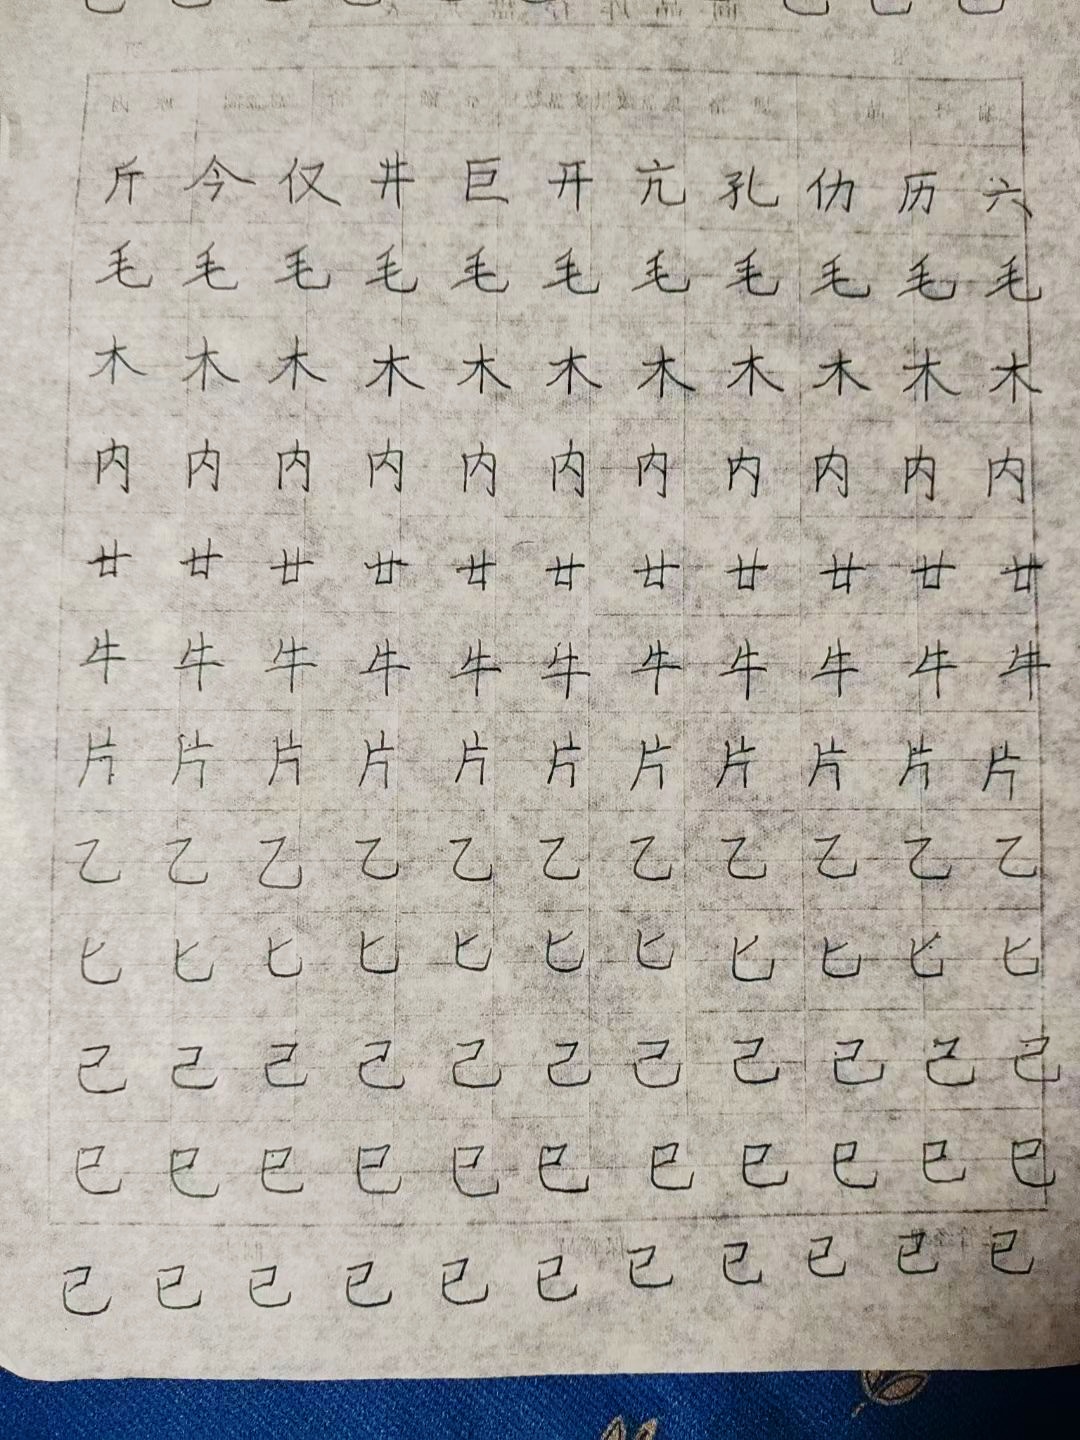 斤今仅井巨开亢孔仂历六
毛毛毛毛毛毛毛毛毛毛毛
木木木木木木木木木木木
内内内内内内内内内内内
廿廿廿廿廿廿廿廿廿廿廿
牛牛牛牛牛牛牛牛牛牛牛
片片片片片片片片片片片
乙乙乙乙乙乙乙乙乙乙乙
匕匕匕匕匕匕匕匕匕匕匕
己己己己己己己己己己己
巳巳巳巳巳巳巳巳巳巳巳
已已已已已已已已已已已